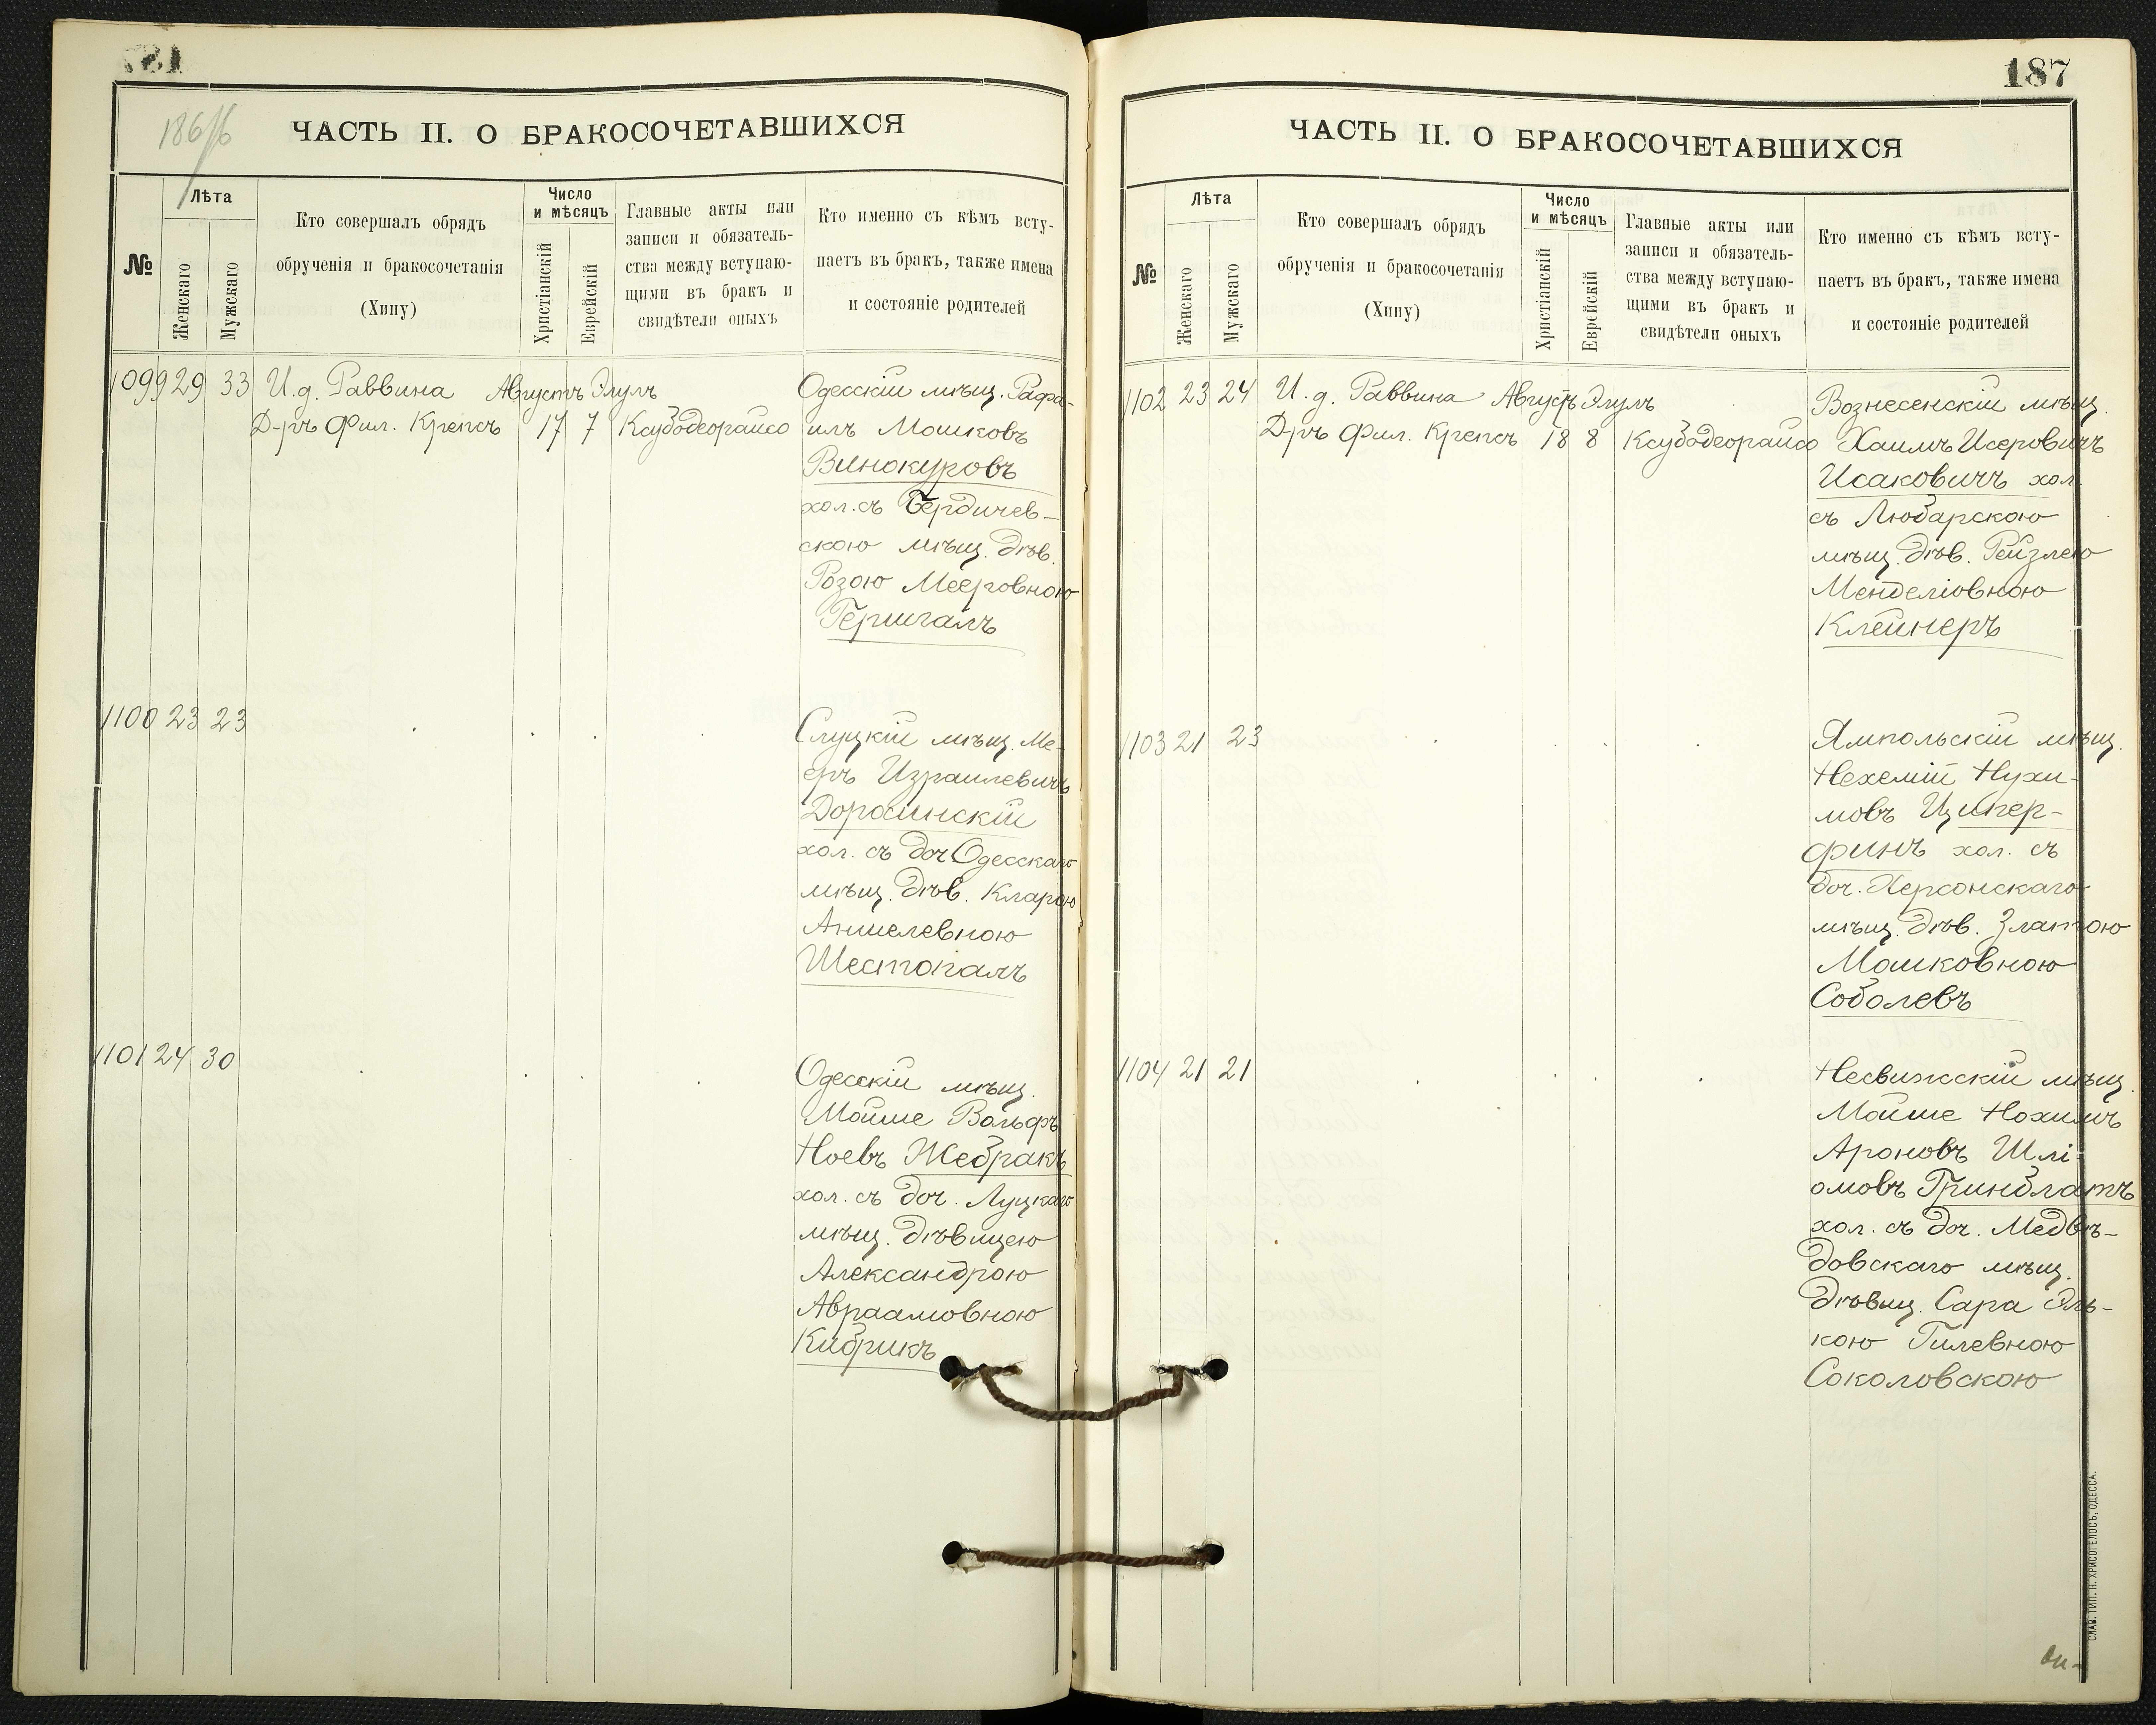 186/б
ЧАСТЬ II. О БРАКОСОЧЕТАВШИХСЯ
№
Лѣта
Женскаго
Мужскаго
Кто совершалъ обрядъ
обрученія и бракосочетанія
(Хипу)
Число
и мѣсяцъ
Христіанскій
Еврейскій
Главные акты или
записи и обязатель-
ства между вступаю-
щими въ бракъ и
свидѣтели оныхъ
Кто именно съ кѣмъ всту-
паетъ въ бракъ, также имена
и состояніе родителей
1099 29 33 И.д. Раввина Августъ Элулъ
Д-ръ Фил. Крепсъ 17 7 Ксубодеорайсо
Одесскій мѣщ. Рафа-
илъ Мошковъ
Винокуровъ
хол. съ Бердичев-
скою мѣщ. дѣв.
Розою Мееровною
Гершгалъ
1100 23 23
Слуцкій мѣщ. Ме-
еръ Израилевичъ
Доросинскій
хол. съ доч Одесскаго
мѣщ. дѣв. Кларою
Аншелевною
Шестопалъ
1101 24 30
Одесскій мѣщ.
Мойше Вольфъ
Ноевъ Жебракъ
хол. съ доч. Луцкаго
мѣщ. дѣвицею
Александрою
Авраамовною
Кибрикъ
187
ЧАСТЬ II. О БРАКОСОЧЕТАВШИХСЯ
№
Лѣта
Женскаго
Мужскаго
Кто совершалъ обрядъ
обрученія и бракосочетанія
(Хипу)
Число
и мѣсяцъ
Христіанскій
Еврейскій
Главные акты или
записи и обязатель-
ства между вступаю-
щими въ бракъ и
свидѣтели оныхъ
Кто именно съ кѣмъ всту-
паетъ въ бракъ, также имена
и состояніе родителей
1102 23 24 И.д. Раввина Августъ Элулъ
Д-ръ Фил. Крепсъ 18 8 Ксубодеорайсо
Вознесенскій мѣщ.
Хаимъ Исеровичъ
Исаковичъ хол.
съ Любарскою
мѣщ. дѣв. Рейзлею
Менделіовною
Клейнеръ
1103 21 23
Ямпольскій мѣщ.
Нехемій Нухи-
мовъ Ципер-
финъ хол. съ
доч. Херсонскаго
мѣщ. дѣв. Златою
Мошковною
Соболевъ
1104 21 21
Несвижскій мѣщ.
Мойше Нохимъ
Ароновъ Шлі-
омовъ Гринблатъ
хол. съ доч. Медвѣ-
довскаго мѣщ.
дѣвиц. Сара Эль-
кою Гилевною
Соколовскою
СЛАВ. ТИП. Н. ХРИСОГЕЛОСЪ, ОДЕССА.